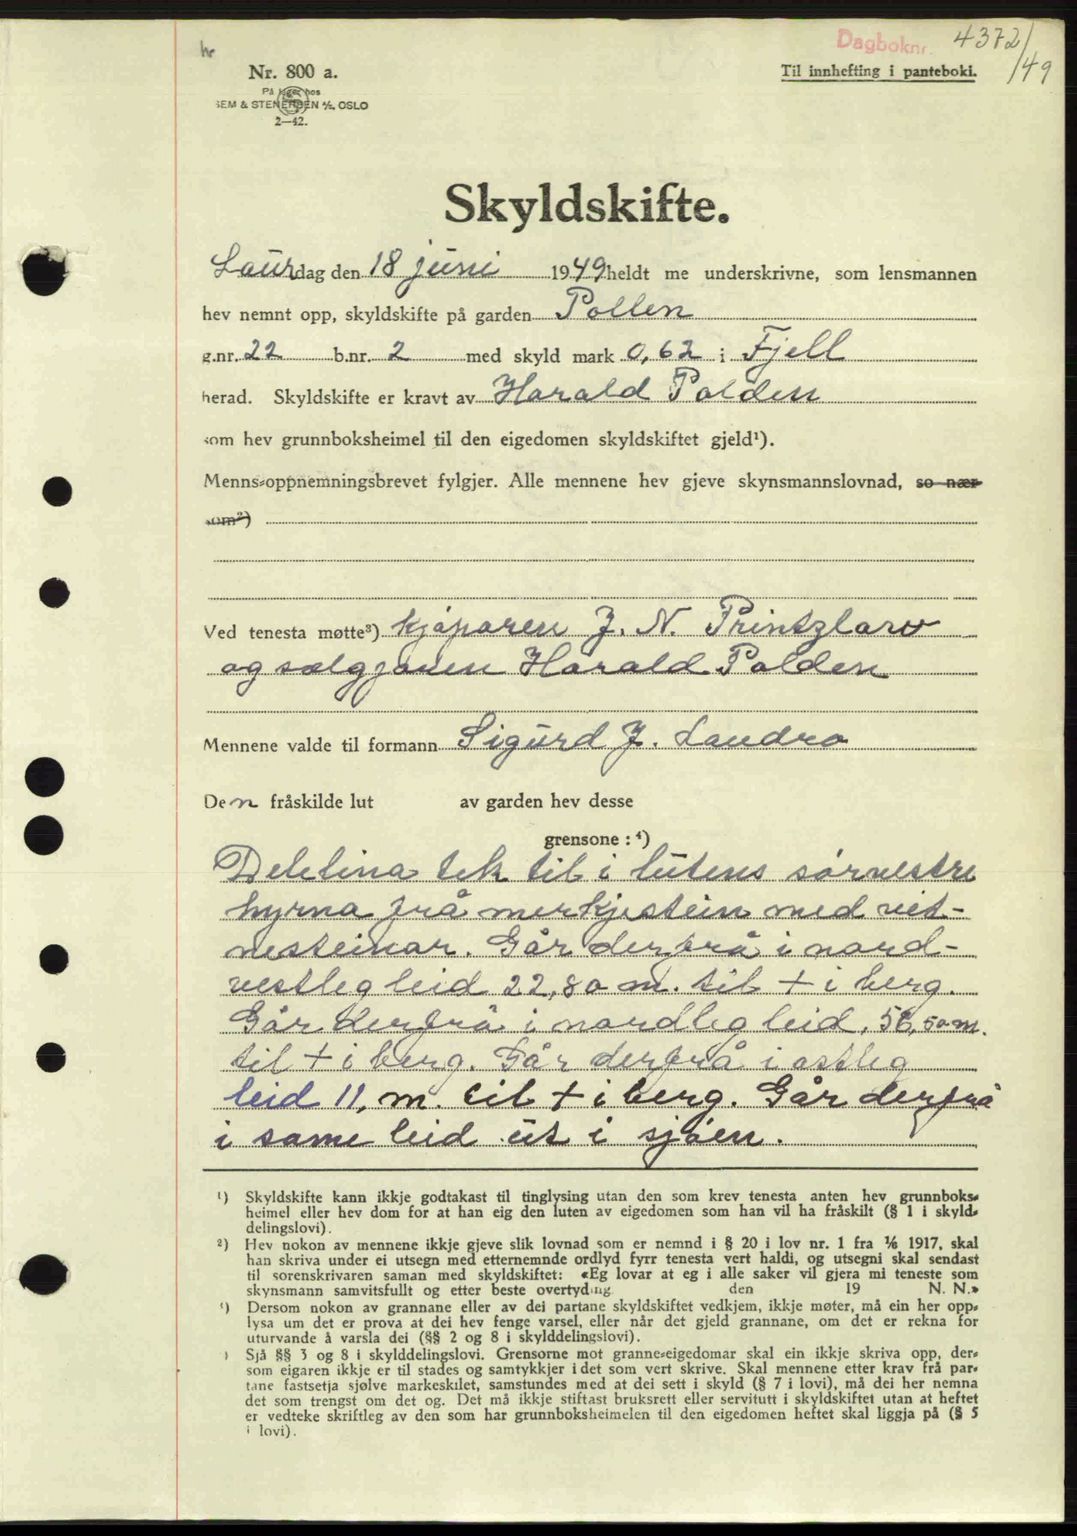 Dagboknr. 4372/49
Nr. 800 a.
På lager hos
SEM & STENERSEN A/S. OSLO
2—42.
Til innhefting i panteboki.
Skyldskifte.
Laurdag den 18 juni 1949 heldt me underskrivne, som lensmannen
hev nemnt opp, skyldskifte på garden Pollen
g.nr. 22 b.nr. 2 med skyld mark 0,62 i Fjell
herad. Skyldskifte er kravt av Harald Polden
som hev grunnboksheimel til den eigedomen skyldskiftet gjeld¹).
Menns-oppnemningsbrevet fylgjer. Alle mennene hev gjeve skynsmannslovnad, so nær
som²)
Ved tenesta møtte³) kjøparen J. N. Printzlaw
og sælgjaren Harald Polden
Mennene valde til formann Sigurd J. Landro
Den fråskilde lut av garden hev desse
grensone : ⁴)
Delelina tek til i lutens sørvestre
hyrna frå merkjestein med vit-
nesteinar. Går derfrå i nord-
vestleg leid 22,80 m. til + i berg.
Går derfrå i nordleg leid, 56,50 m.
til + i berg. Går derfrå i ostleg
leid 11, m. til + i berg. Går derfrå
i same leid ut i sjøen.
¹) Skyldskifte kann ikkje godtakast til tinglysing utan den som krev tenesta anten hev grunnboks-
heimel eller hev dom for at han eig den luten av eigedomen som han vil ha fråskilt (§ 1 i skyld-
delingslovi).
²) Hev nokon av mennene ikkje gjeve slik lovnad som er nemnd i § 20 i lov nr. 1 fra 1/6 1917, skal
han skriva under ei utsegn med etternemnde ordlyd fyrr tenesta vert haldi, og utsegni skal sendast
til sorenskrivaren saman med skyldskiftet: «Eg lovar at eg i alle saker vil gjera mi teneste som
skynsmann samvitsfullt og etter beste overtyding den 19 N. N.»
³) Dersom nokon av grannane eller av dei partane skyldskiftet vedkjem, ikkje møter, må ein her opp-
lysa um det er prova at dei hev fenge varsel, eller når det gjeld grannane, om det er rekna for
uturvande å varsla dei (§§ 2 og 8 i skylddelingslovi).
) Sjå §§ 3 og 8 i skylddelingslovi. Grensorne mot granne-eigedomar skal ein ikkje skriva opp, der-
som eigaren ikkje er til stades og samtykkjer i det som vert skrive. Skal mennene etter krav frå par-
tane fastsetja sjølve markeskilet, samstundes med at dei sett i skyld (§ 7 i lovi), må dei her nemna
det som trengst om det og. Det må ikkje stiftast bruksrett eller servitutt i skyldskiftet utan at heftet
er vedteke skriftleg av den som har grunnboksheimelen til den eigedomen heftet skal liggja på (§ 5
i lovi).